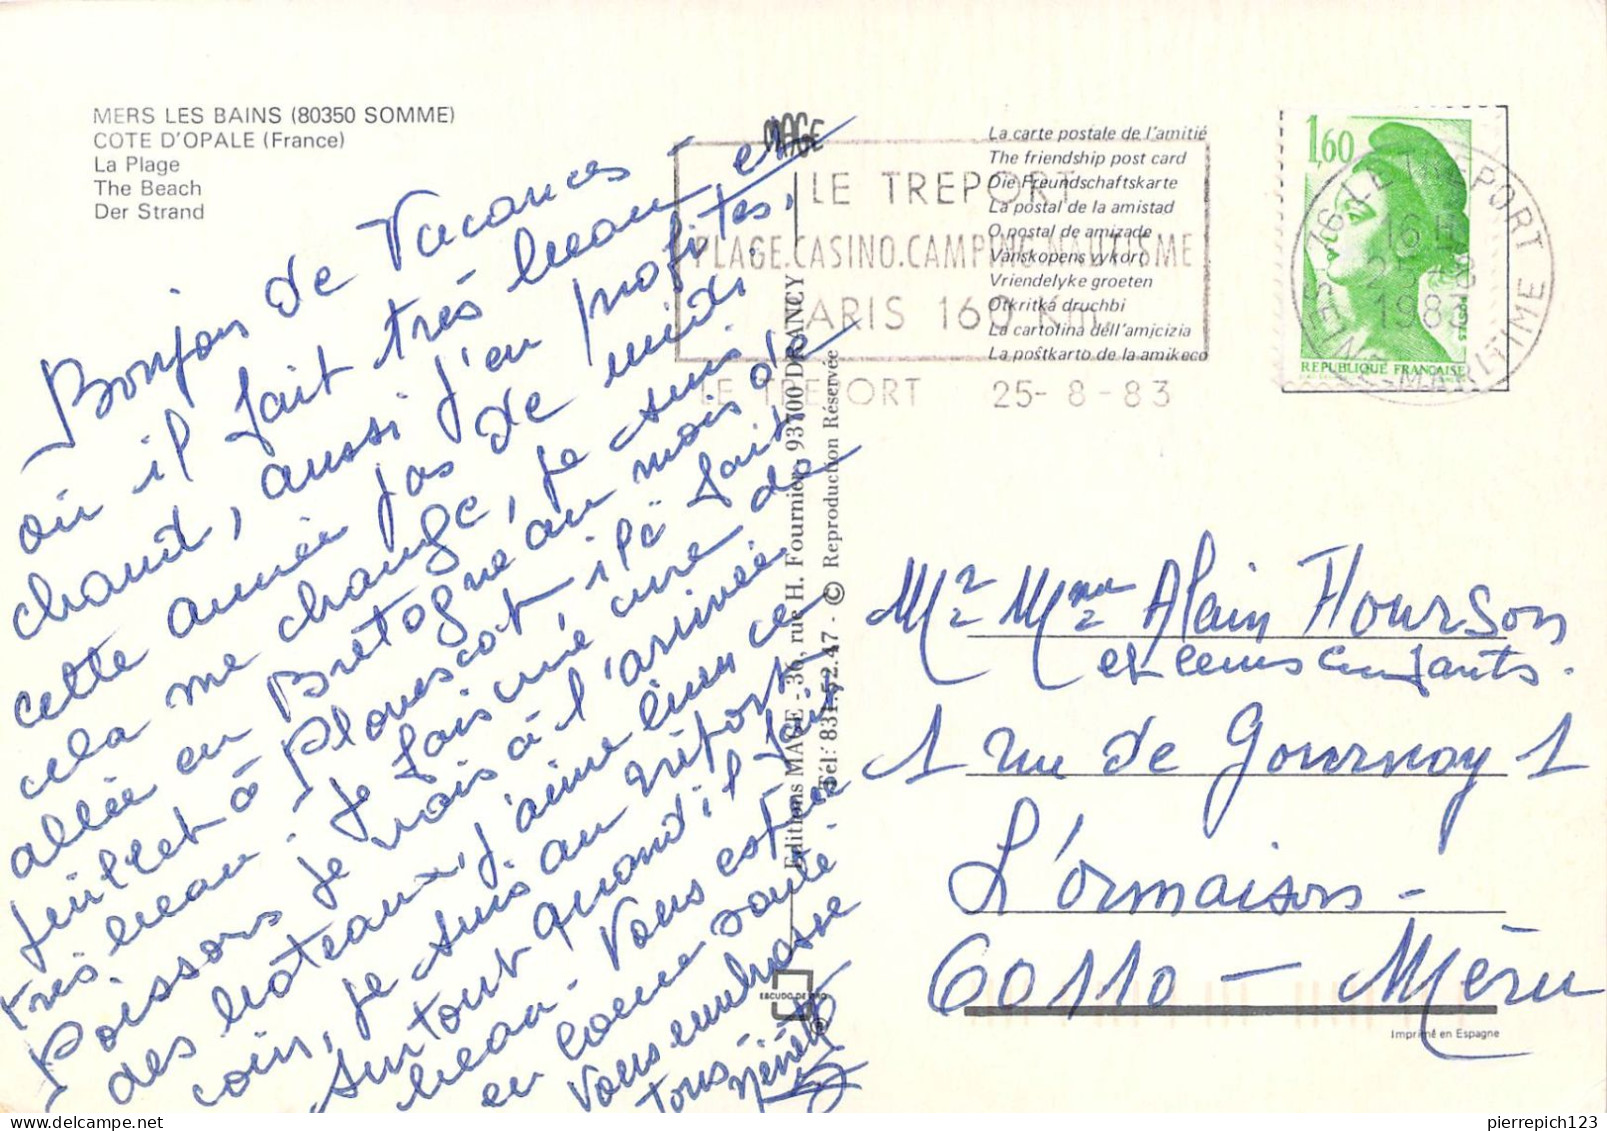 MERS LES BAINS (80350 SOMME)
COTE D'OPALE (France)
La Plage
The Beach
Der Strand
Bonjour de Vacances -
où il fait très beau et
chaud, aussi j'en profites,
cette année pas de midi
cela me change, je suis
allée en Bretagne au mois de
juillet à Plouescat il a fait
très beau. Je fais une cure de
Poissons je vais à l'arrivée
des bateaux, j'aime bien ce
coin, je suis au tréport
surtout quand il fait
beau. Vous espère
en bonne santé -
Vous embrasse
tous.
MAGE
LE TREPORT
PLAGE.CASINO.CAMPING.NAUTISME
PARIS 160 KM
LE TREPORT 25-8-83
La carte postale de l'amitié
The friendship post card
Die Freundschaftskarte
La postal de la amistad
O postal de amizade
Vänskopens vykort
Vriendelyke groeten
Otkritká druchbi
La cartolina dell'amicizia
La poŝtkarto de la amikeco
1,60
POSTES
REPUBLIQUE FRANÇAISE
76 LE TREPORT
16H
25-8
1983
SEINE-MARITIME
Editions MAGE - 36, rue H. Fournier, 93700 DRANCY
Tél: 831.52.47 - © Reproduction Réservée
ESCUDO DE ORO
Mr Mme Alain Flourson
et leurs enfants.
1 rue de Gournay 1
L'ormaison -
60110 - Méru
Imprimé en Espagne
pierrepich123